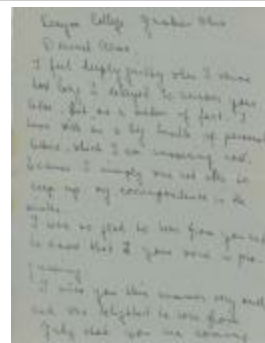 Kenyon College Gambier Ohio
Dearest
I feel deeply guilty when I
how long I delayed to answer your
letter. But as a matter of fact I
have with me a big bundle of personal
letters which I am answering now,
because I simply was not able to
keep up my correspondence in the
I was so glad to hear from you and
to know that your voice is
I miss you this summer very much
and was delighted to hear from
that you are coming